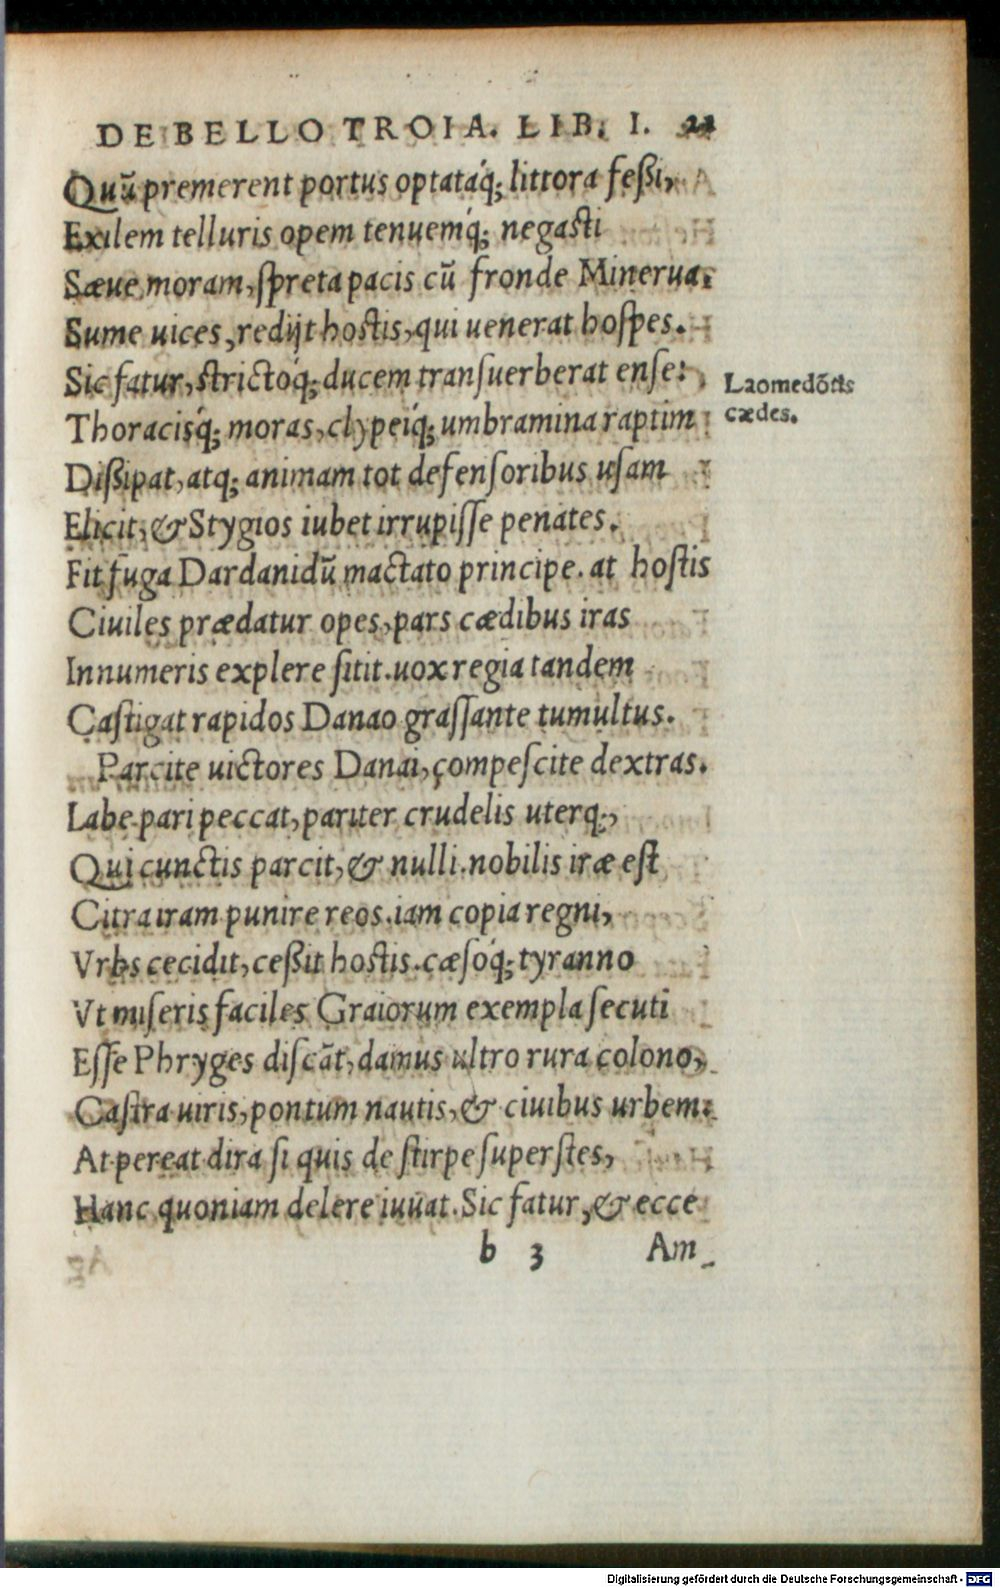 DE BELLO TROIA. LIB. I. 21
Quū premerent portus optatáq; littora feßi,
Exilem telluris opem tenuemq́; negasti
Sæue moram, ſpreta pacis cū fronde Minerua.
Sume uices, redijt hostis, qui uenerat hoſpes.
Sic fatur, strictóq; ducem tranſuerberat enſe:
Laomedōtis
cædes.
Thoracisq́; moras, clypeiq́; umbramina raptim
Dißipat, atq; animam tot defenſoribus uſam
Elicit, & Stygios iubet irrupiſſe penates.
Fit fuga Dardanidū mactato principe. at hostis
Ciuiles prædatur opes, pars cædibus iras
Innumeris explere ſitit. uox regia tandem
Caſtigat rapidos Danao graſſante tumultus.
Parcite uictores Danai, compeſcite dextras.
Labe pari peccat, pariter crudelis uterq;,
Qui cunctis parcit, & nulli. nobilis iræ eſt
Citra iram punire reos. iam copia regni,
Vrbs cecidit, ceßit hostis. cæſóq; tyranno
Vt miſeris faciles Graiorum exempla ſecuti
Eſſe Phryges diſcāt, damus ultro rura colono,
Caſtra uiris, pontum nautis, & ciuibus urbem.
At pereat dira ſi quis de ſtirpe ſuperſtes,
Hanc quoniam delere iuuat. Sic fatur, & ecce
b 3 Am_
Digitalisierung gefördert durch die Deutsche Forschungsgemeinschaft - DFG